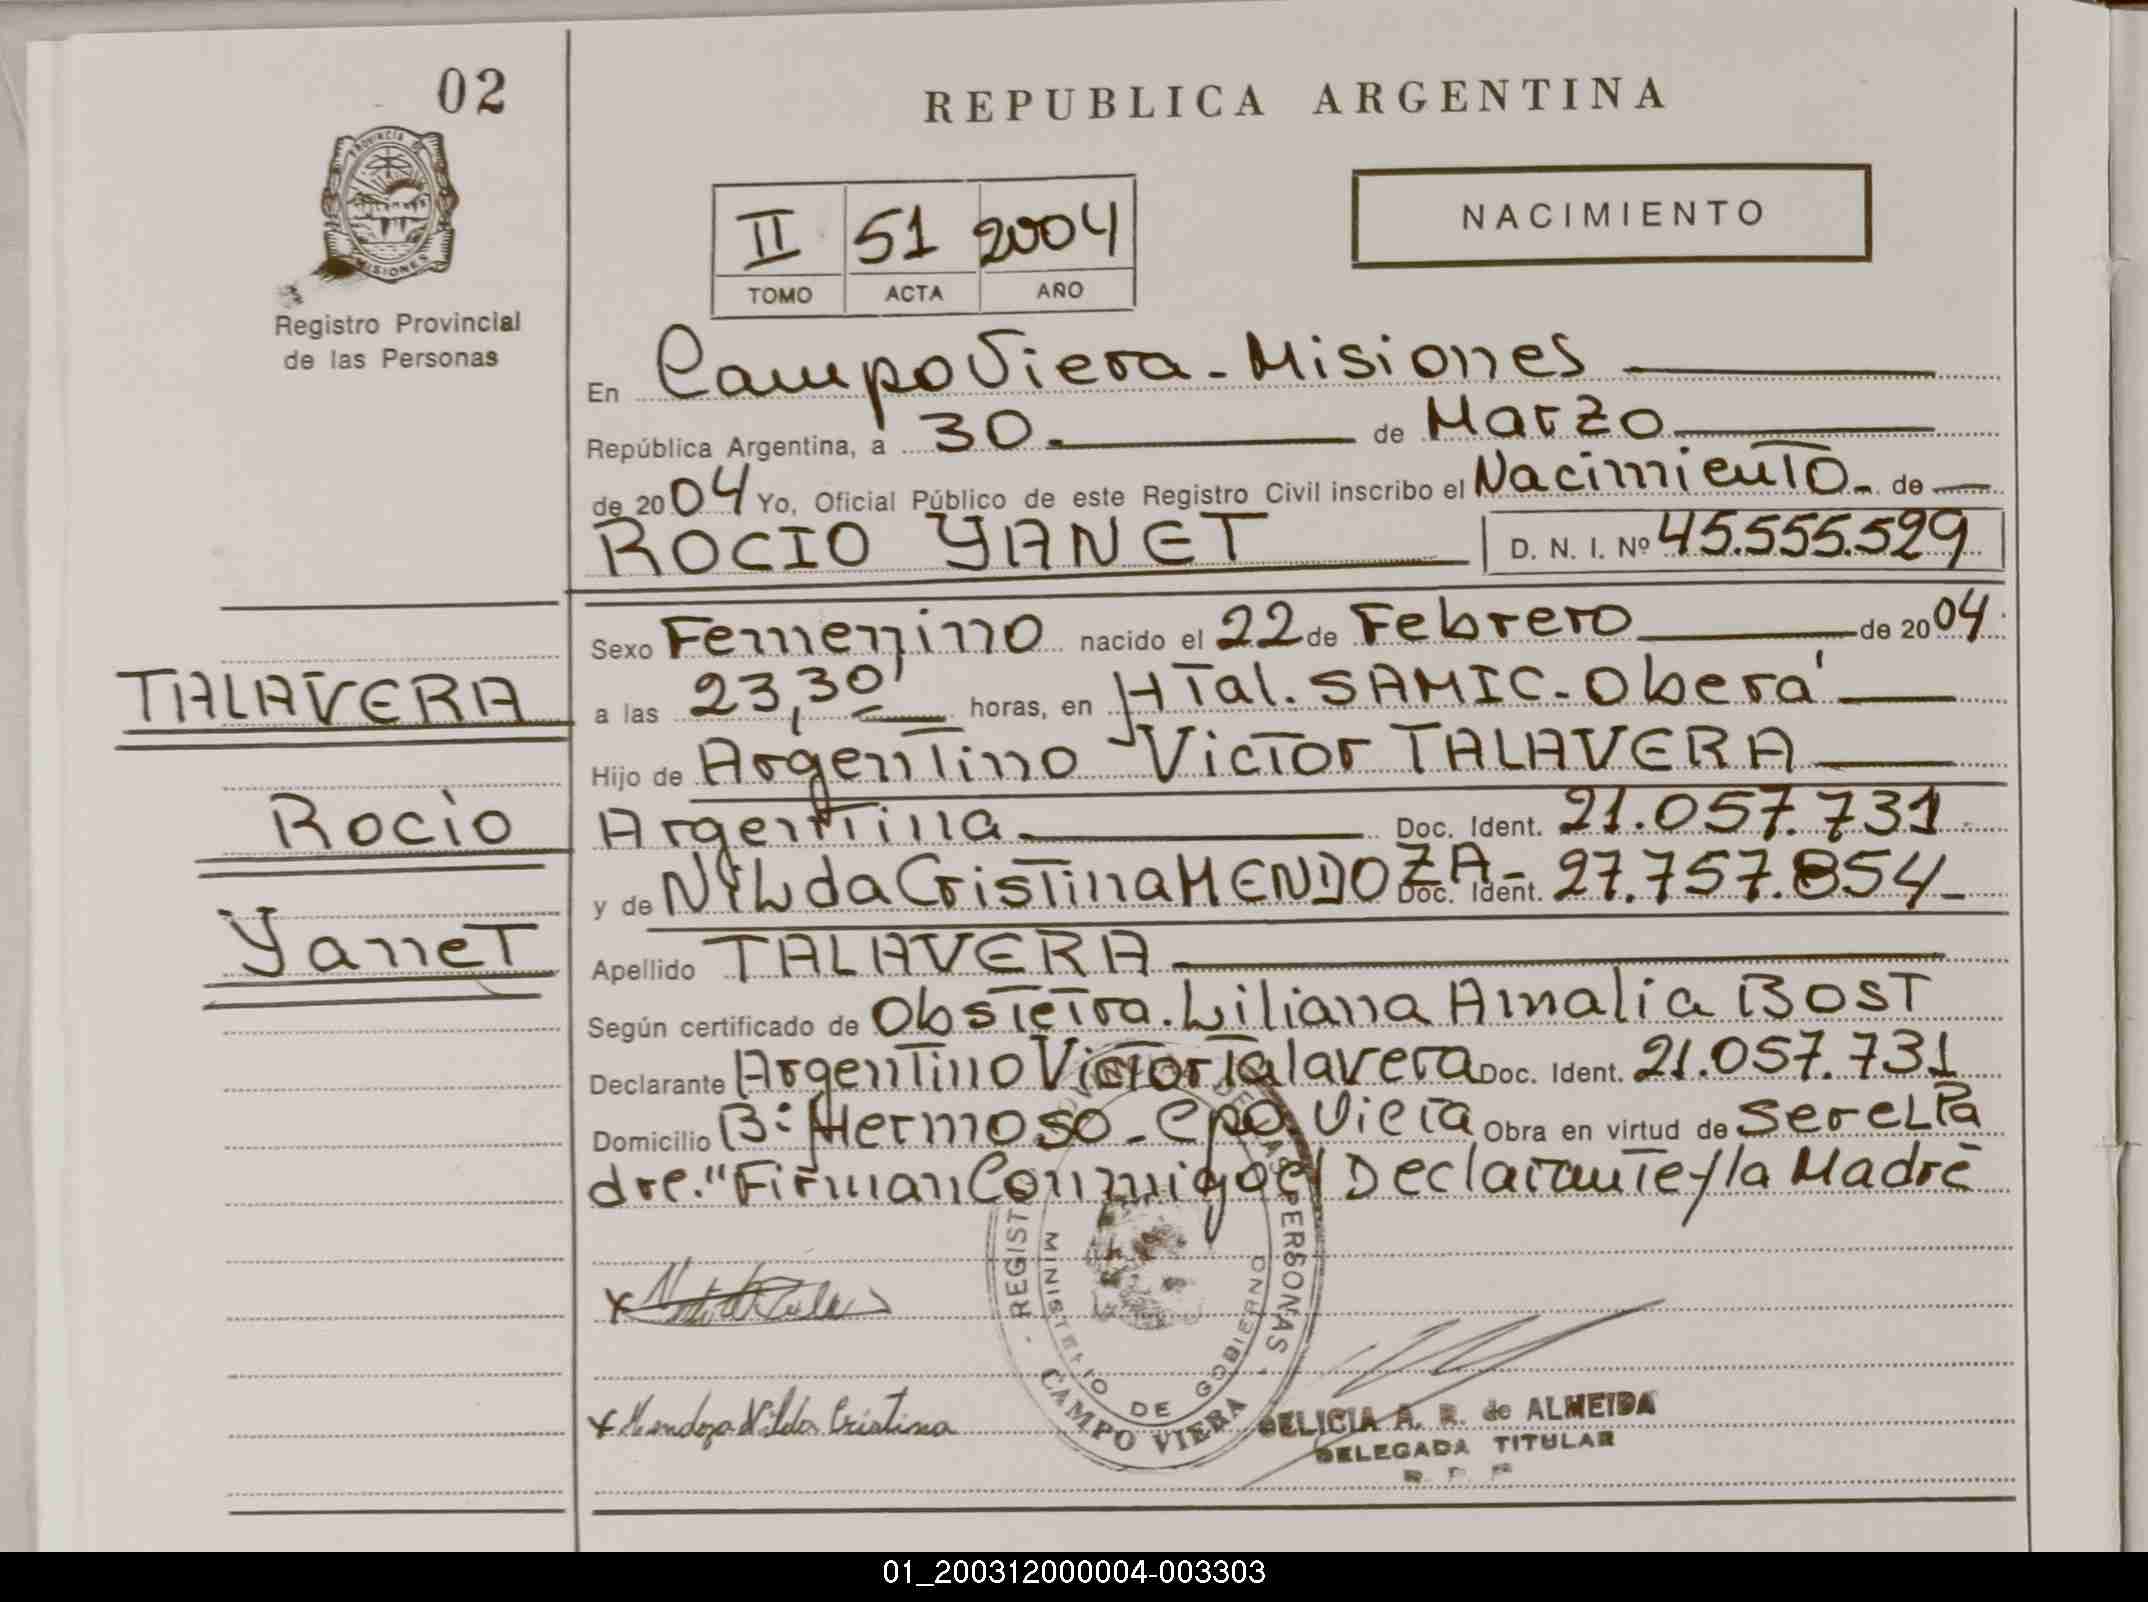 02
REPUBLICA ARGENTINA
PROVINCIA DE
MISIONES
Registro Provincial
de las Personas
II 51 2004
TOMO ACTA AÑO
NACIMIENTO
En Campo Viera - Misiones
República Argentina, a 30 de Marzo
de 2004 Yo, Oficial Público de este Registro Civil inscribo el Nacimiento de
ROCIO YANET D. N. I. Nº 45.555.529
Sexo Femenino nacido el 22 de Febrero de 2004
a las 23,30' horas, en HTal. SAMIC - Oberá
Hijo de Argentino Victor TALAVERA
Argentina Doc. Ident. 21.057.731
y de Nilda Cristina MENDOZA - Doc. Ident. 27.757.854
Apellido TALAVERA
Según certificado de Obstetra. Liliana Amalia BOST
Declarante Argentino Victor Talavera Doc. Ident. 21.057.731
Domicilio B: Hermoso - Cpo. Viera Obra en virtud de ser el Pa
dre." Firman Conmigo el Declarante y la Madre
TALAVERA
Rocio
Yanet
REGISTRO PROVINCIAL DE LAS PERSONAS
MINISTERIO DE GOBIERNO
CAMPO VIERA
x Mendoza Nilda Cristina
DELICIA A. R. de ALMEIDA
DELEGADA TITULAR
R. P. P.
01_200312000004-003303